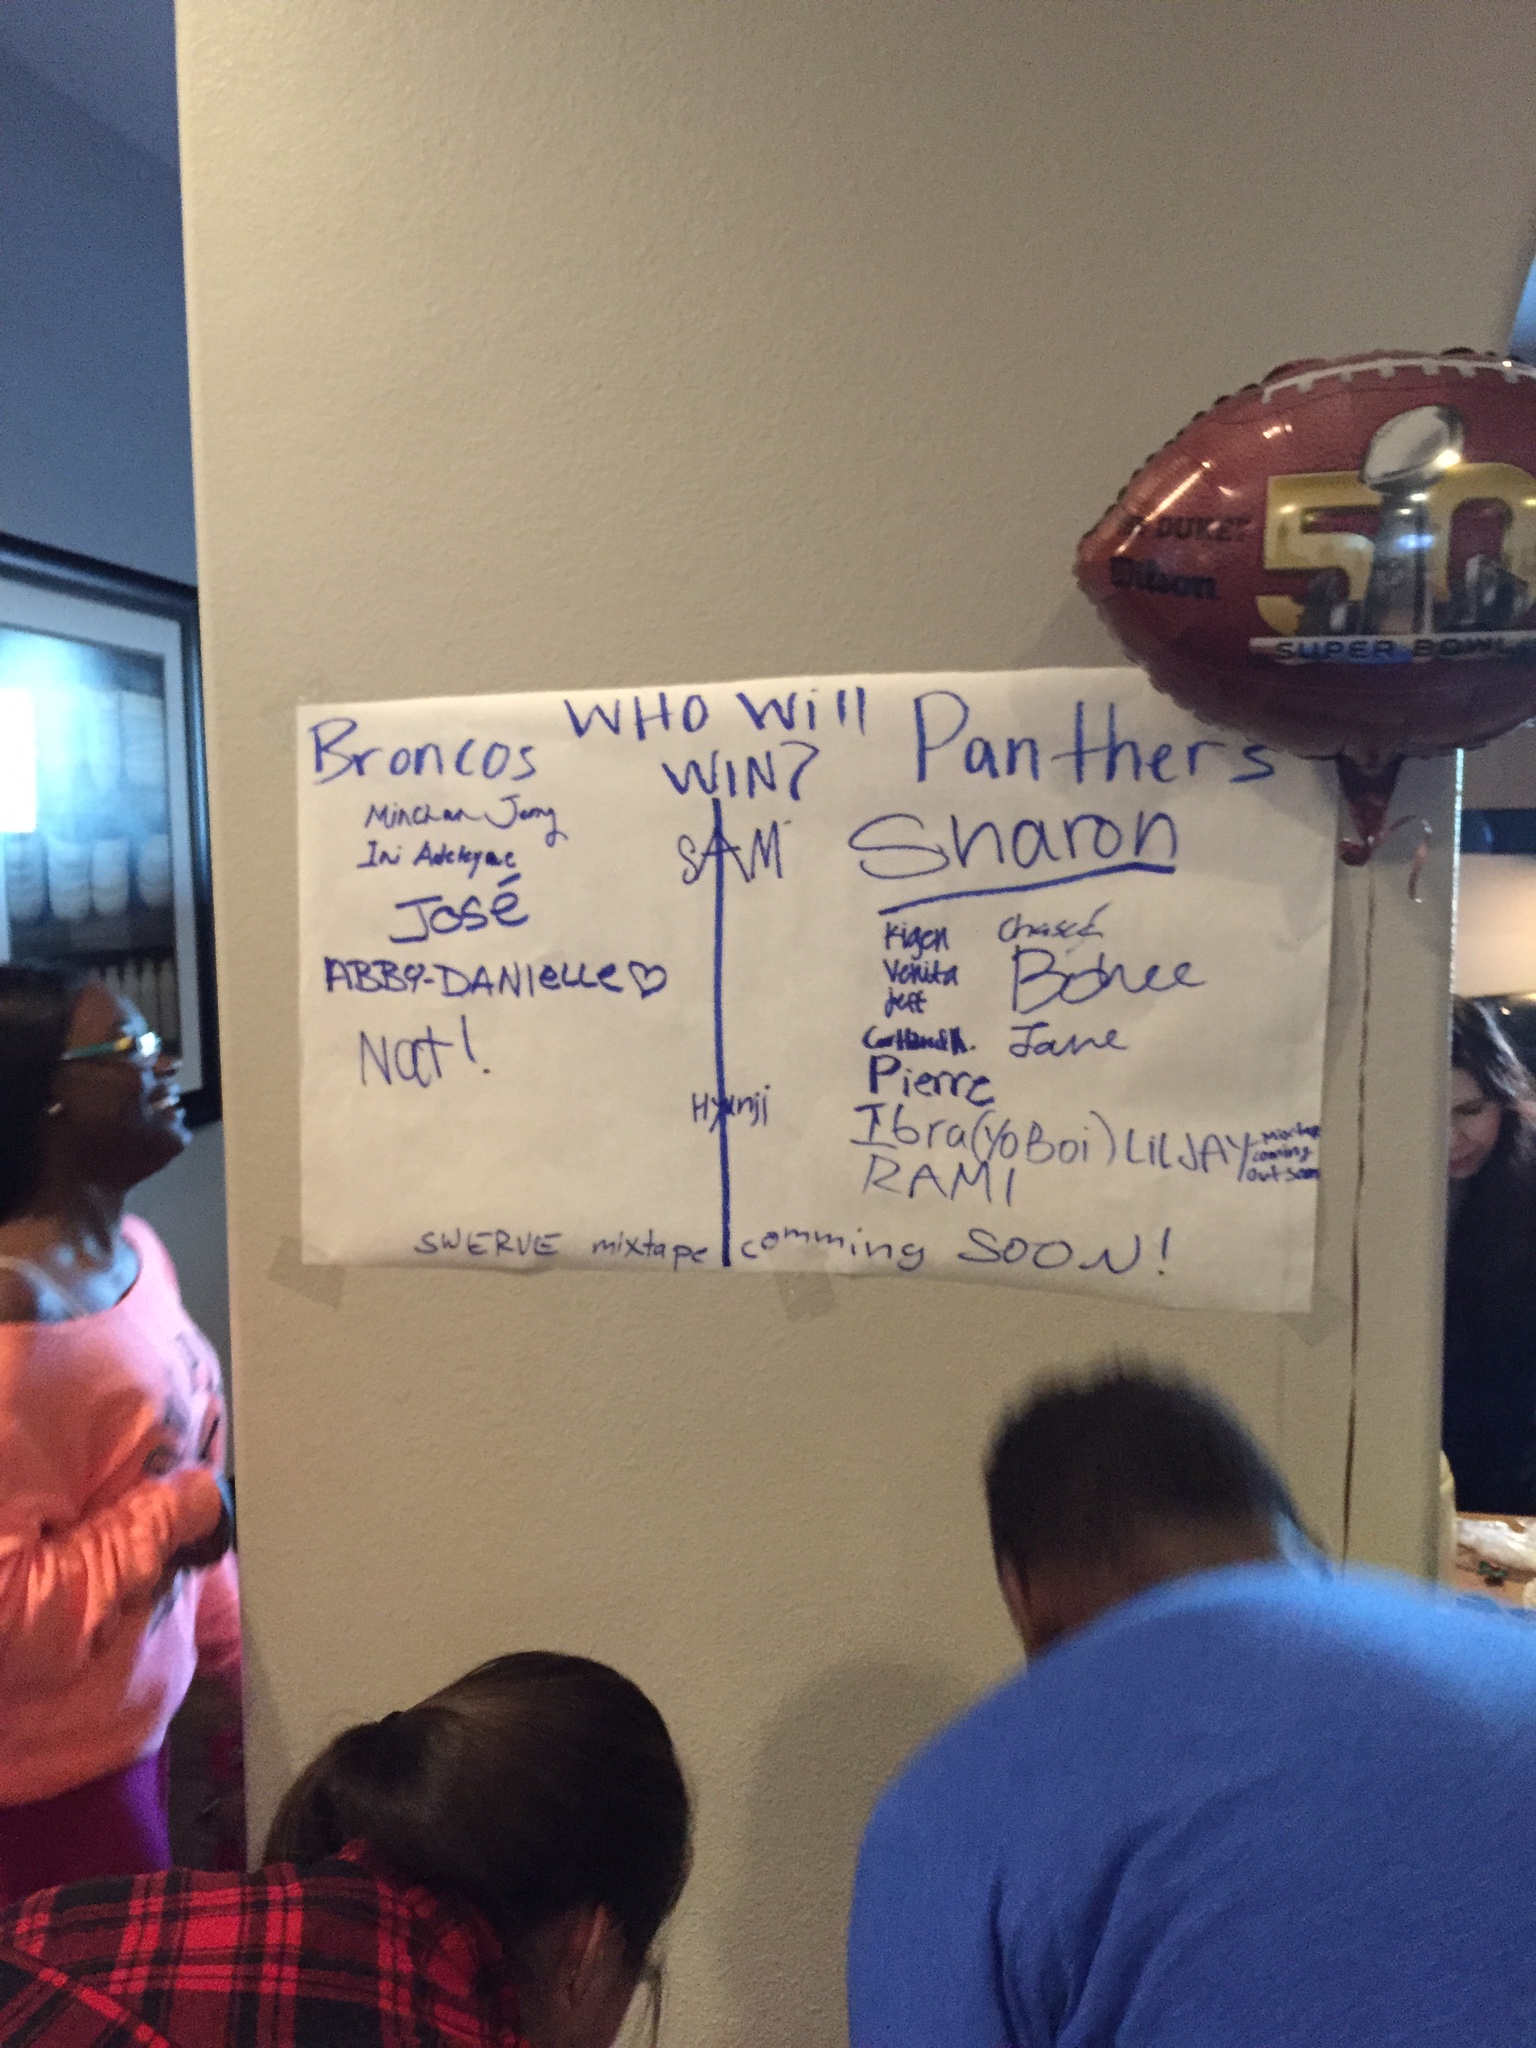 THE DUKE
Wilson
50
SUPER BOWL
WHO Will
WIN?
Broncos
Minchan Jerry
Ini Adeleye
José
ABBY-DANIELLE♡
Nat!
SAM
Hyunji
Panthers
Sharon
Kigen
Venita
Jeff
Pierre
Chasé
Jane
Ibra(Yo Boi) LIL JAY - Mixtape
coming
out soon
RAMI
SWERVE mixtape comming SOON!